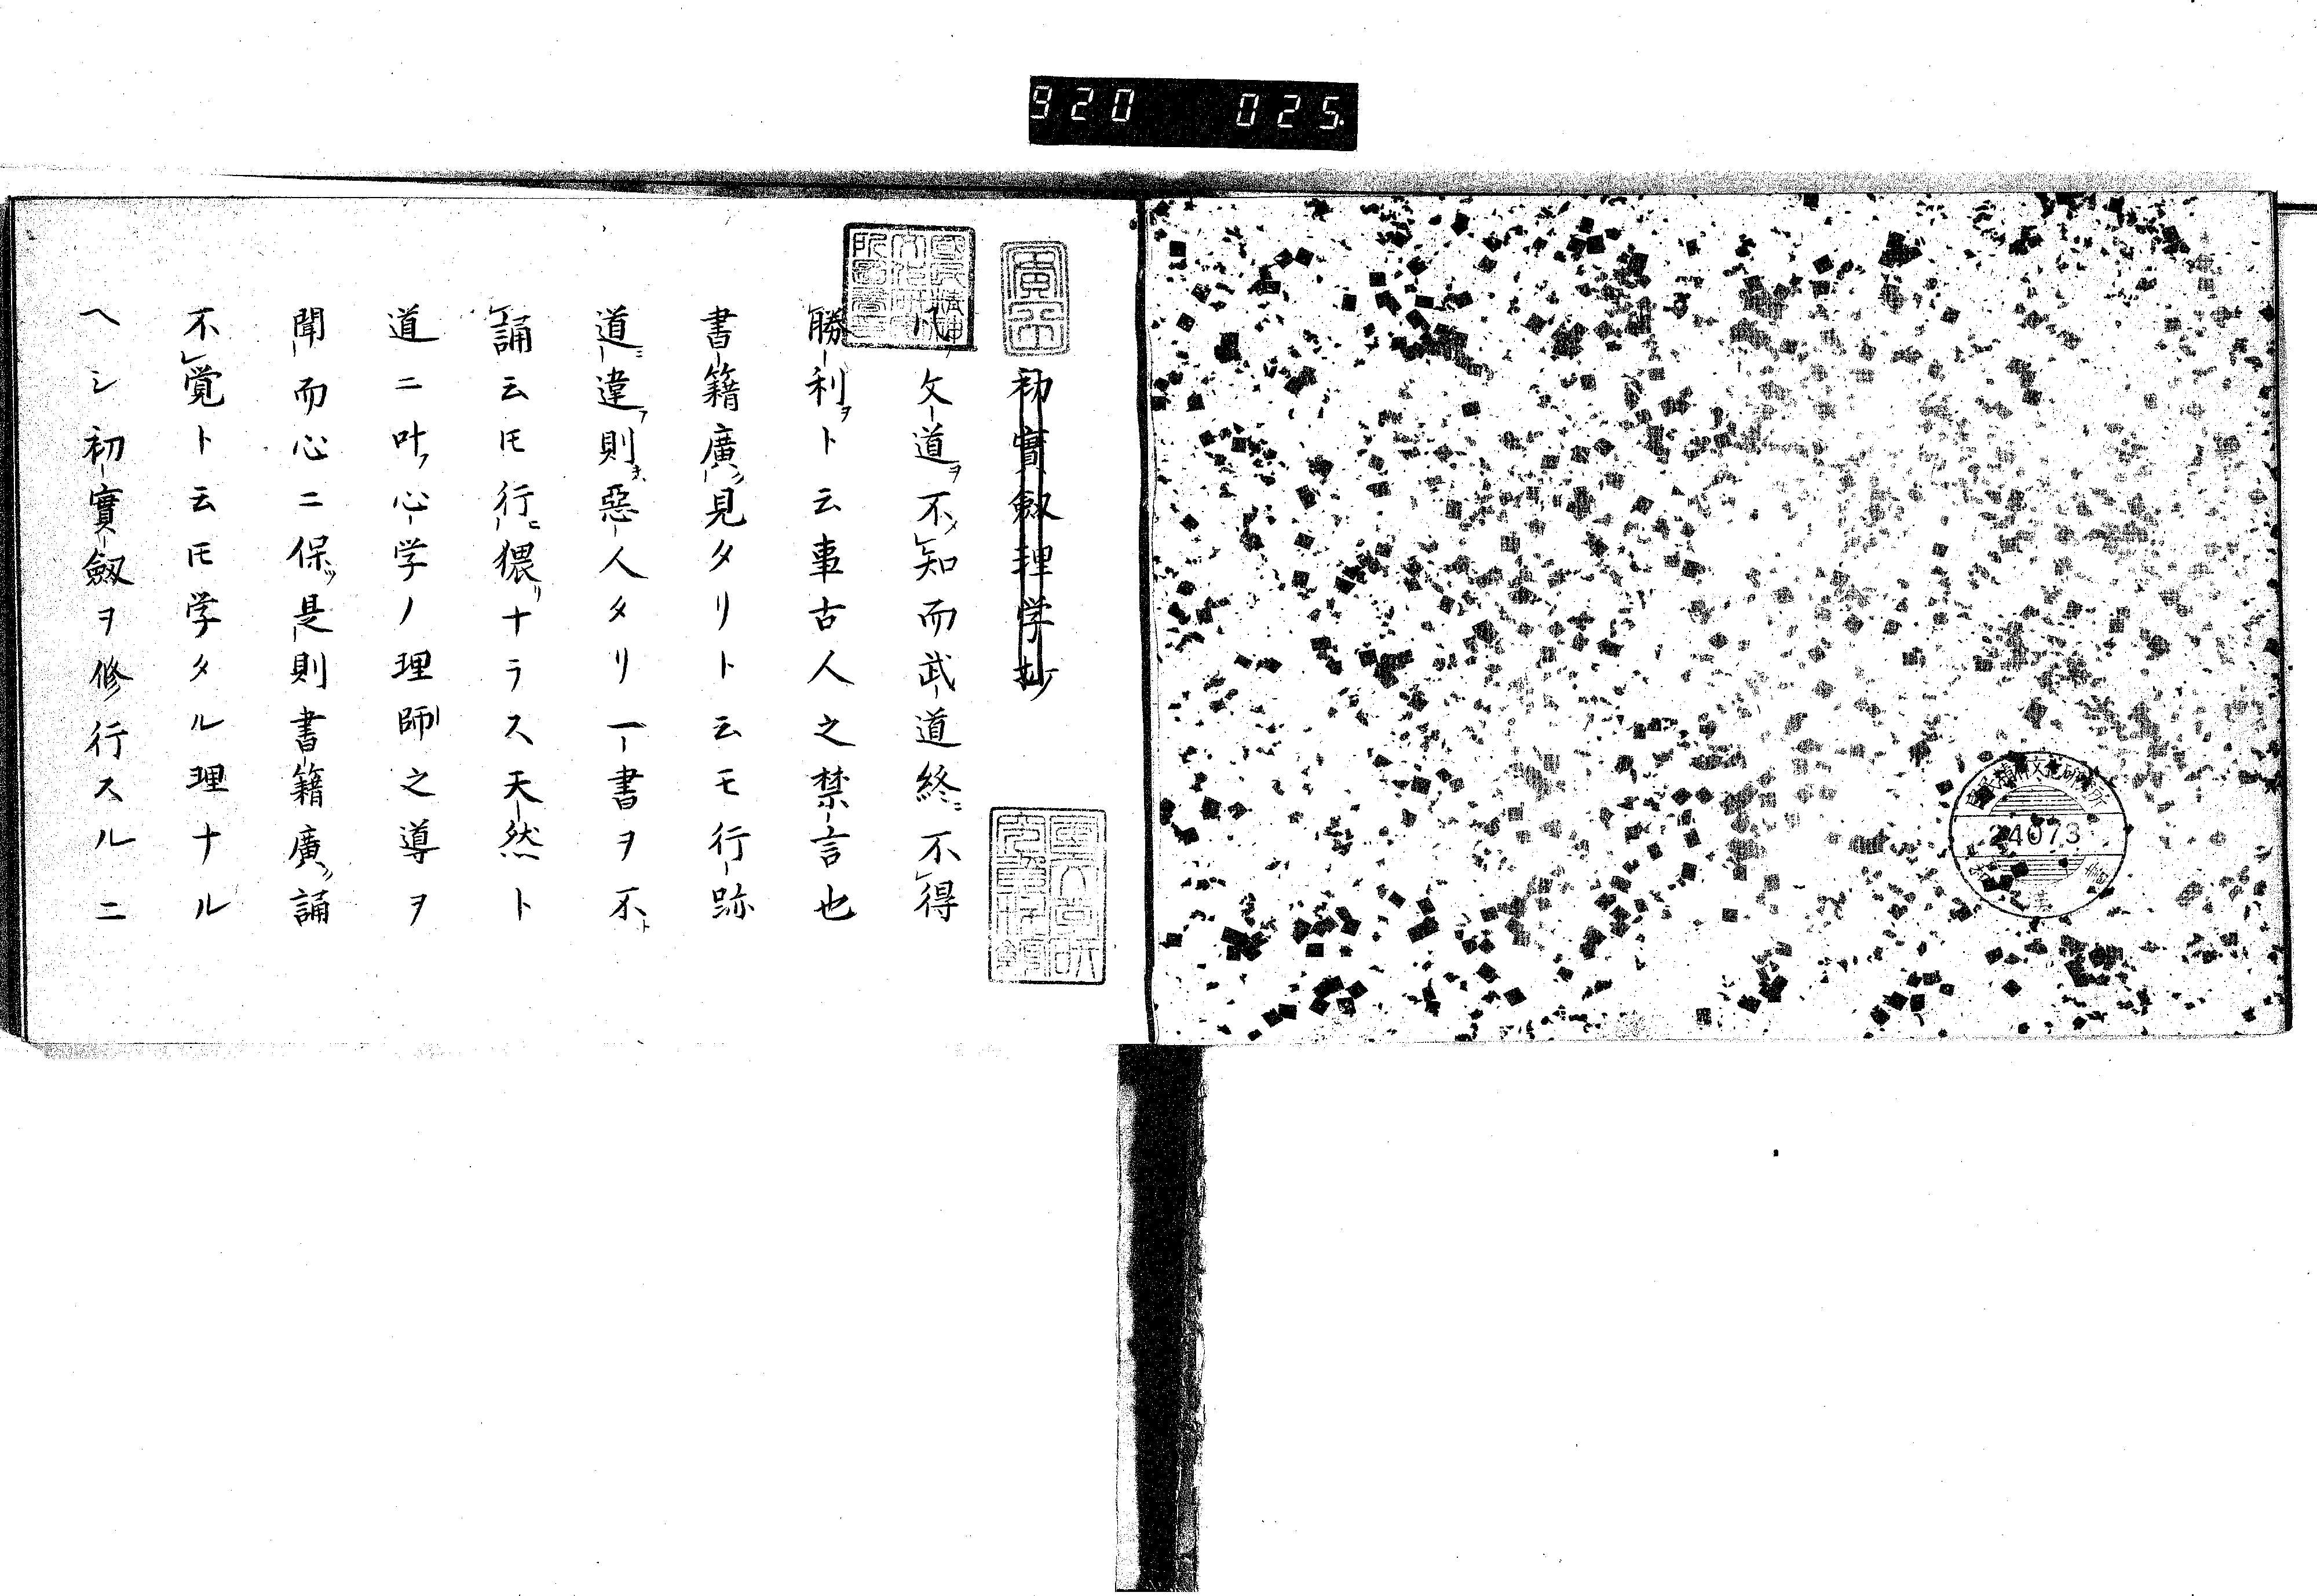 920 025.
24073
初實劔理学抄
凡文道ヲ不知而武道終ニ不得
勝利ヲト云事古人之禁言也
書籍廣ク見タリト云モ行跡
道ニ違フ則ハ惡人タリ一書ヲ不
誦云𪜈行ニ猥リナラス天然ト
道ニ叶フ心学ノ理師之導ヲ
聞而心ニ保ツ是則書籍廣ク誦
不覚ト云𪜈学タル理ナル
ヘシ初實劔ヲ修行スルニ